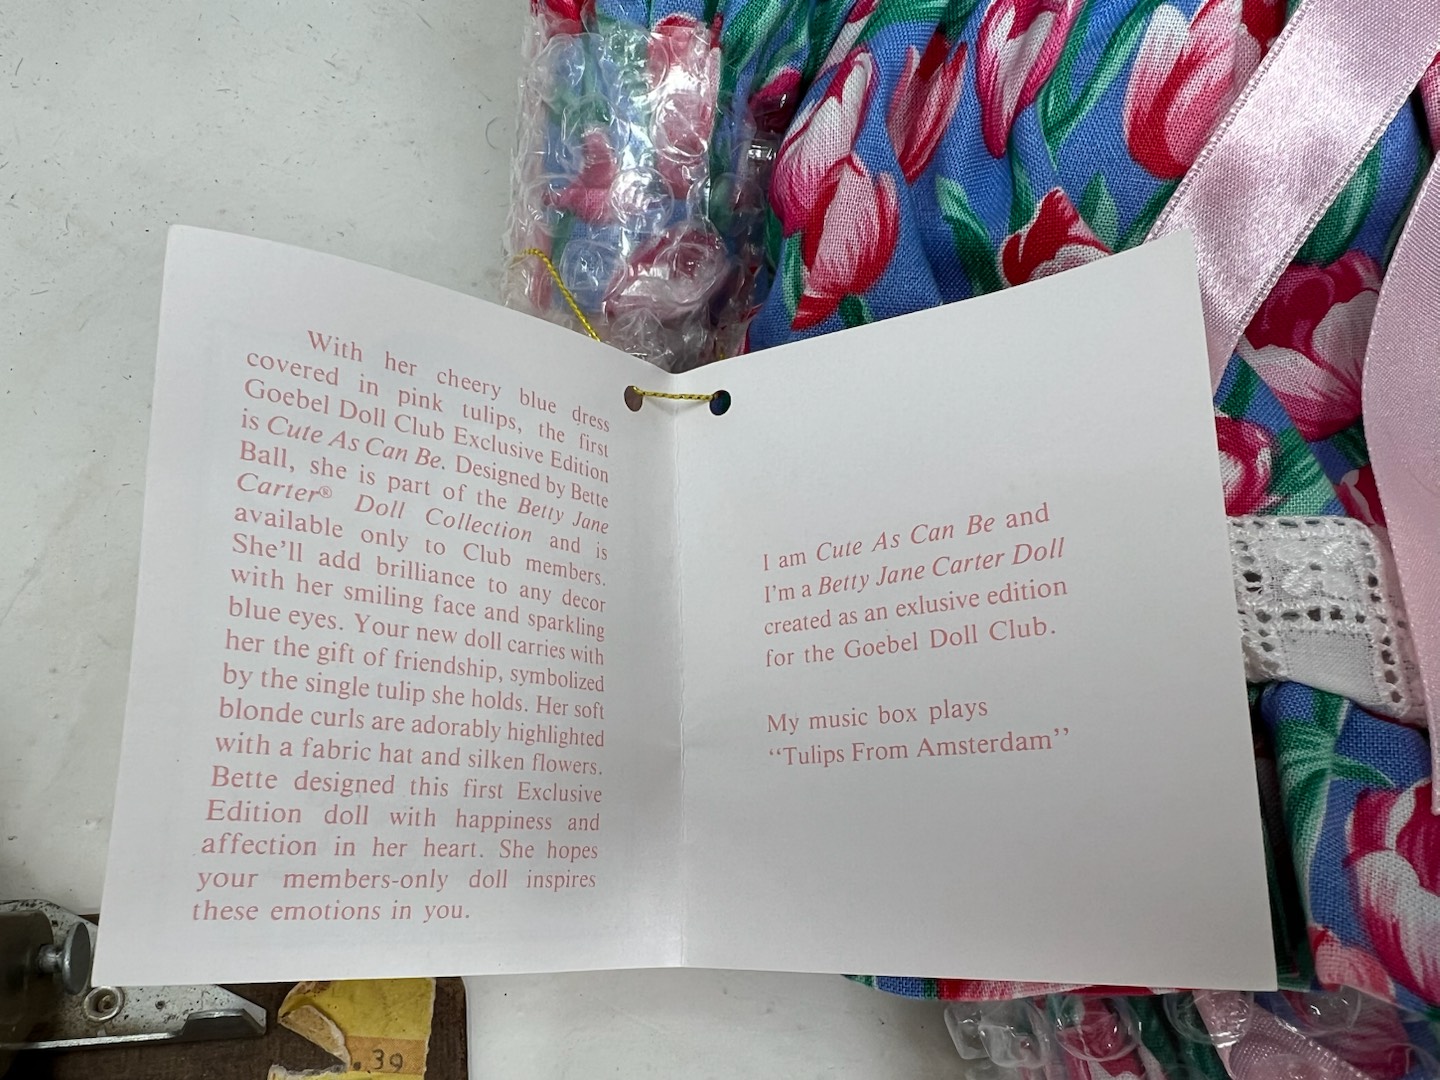 With her cheery blue dress
covered in pink tulips, the first
Goebel Doll Club Exclusive Edition
is Cute As Can Be. Designed by Bette
Ball, she is part of the Betty Jane
Carter® Doll Collection and is
available only to Club members.
She'll add brilliance to any decor
with her smiling face and sparkling
blue eyes. Your new doll carries with
her the gift of friendship, symbolized
by the single tulip she holds. Her soft
blonde curls are adorably highlighted
with a fabric hat and silken flowers.
Bette designed this first Exclusive
Edition doll with happiness and
affection in her heart. She hopes
your members-only doll inspires
these emotions in you.
I am Cute As Can Be and
I'm a Betty Jane Carter Doll
created as an exlusive edition
for the Goebel Doll Club.
My music box plays
“Tulips From Amsterdam”
.39